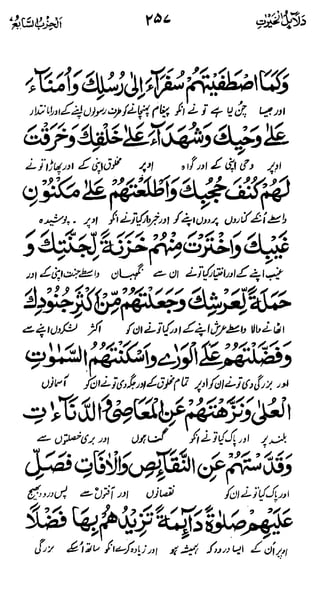 دلائل الخیرات ۲۵۷ الحزب السابع
وَكَمَا اصْطَفَيْتَهُمْ سُفَرَآءَ اِلٰى رُسُلِكَ وَاُمَنَآءَ
اور جیسا چن لیا ہے تو نے انکو پیغام پہنچانے کو طرف رسولوں اپنے کے اور امانتدار
عَلٰى وَحْيِكَ وَشُهَدَآءَ عَلٰى خَلْقِكَ وَخَرَقْتَ
اوپر وحی اپنی کے اور گواہ اوپر مخلوق اپنی کے اور پھاڑا تو نے
لَهُمْ كُنُفَ حُجُبِكَ وَاَطْلَعْتَهُمْ عَلٰى مَكْنُوْنِ
واسطے انکے کناروں پردوں اپنے کے اور خبردار کیا تو نے انکو اوپر پوشیدہ
غَيْبِكَ وَاخْتَرْتَ مِنْهُمْ خَزَنَةً لِّجَنَّتِكَ وَ
غیب اپنے کے اور اختیار کیا تو نے ان سے نگہبان واسطے جنت اپنی کے اور
حَمَلَةً لِّعَرْشِكَ وَجَعَلْتَهُمْ مِّنْ اَكْثَرِ جُنُوْدِكَ
اٹھانے والا واسطے عرش اپنے کے اور کیا تو نے ان کو اکثر لشکروں اپنے سے
وَفَضَّلْتَهُمْ عَلَى الْوَرٰى وَاَسْكَنْتَهُمُ السَّمٰوٰتِ
اور بزرگی دی تو نے ان کو اوپر تمام مخلوق کے اور جگہ دی تو نے ان کو آسمانوں
الْعُلٰى وَنَزَّهْتَهُمْ عَنِ الْمَعَاصِىْ وَالدَّنَآءَاتِ
بلند پر اور پاک کیا تو نے انکو گناہوں اور بری خصلتوں سے
وَقَدَّسْتَهُمْ عَنِ النَّقَآئِصِ وَالْاٰفَاتِ فَصَلِّ
اور پاک کیا تو نے ان کو نقصانوں اور آفتوں سے پس درود بھیج
عَلَيْهِمْ صَلٰوةً دَآئِمَةً تَزِيْدُهُمْ بِهَا فَضْلًا
اوپر ان کے ایسا درود کہ ہمیشہ ہو اور زیادہ کرے انکو ساتھ اسکے بزرگی